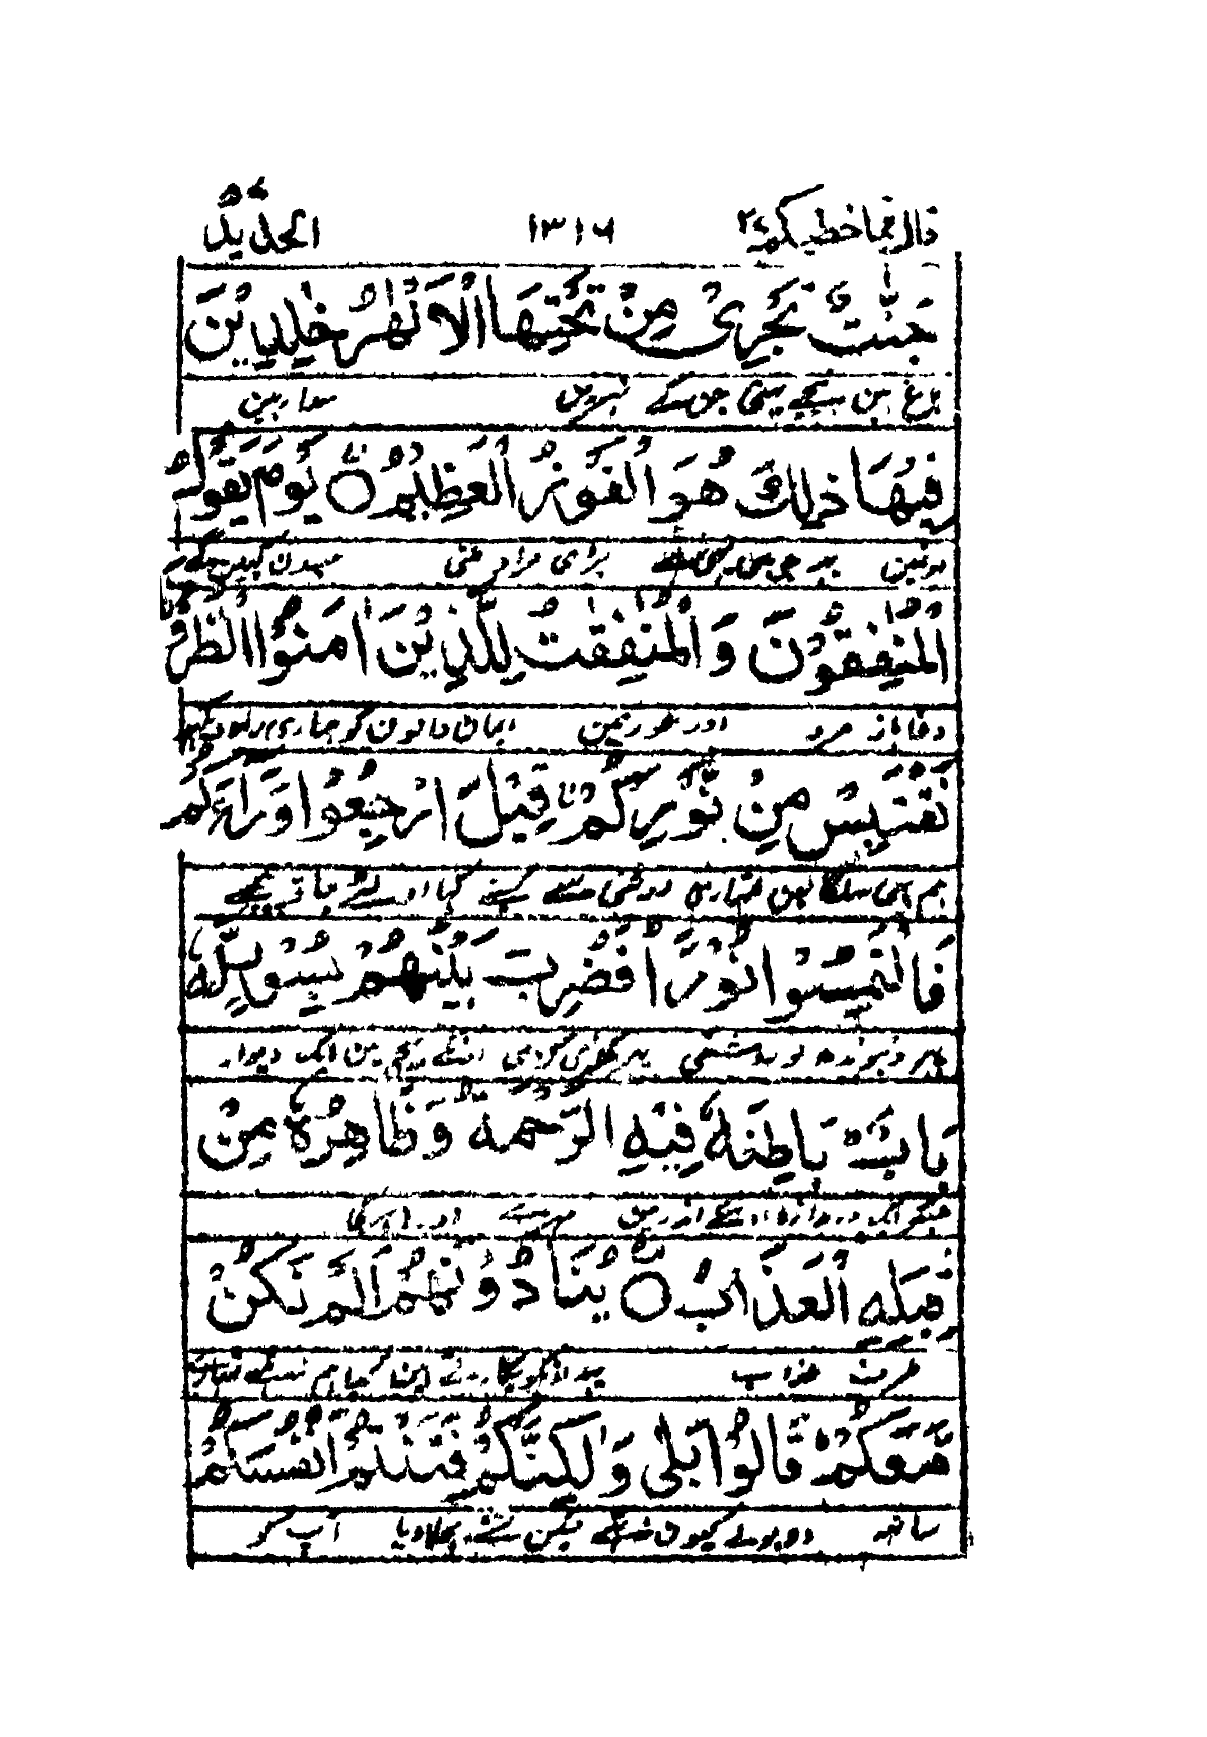 قال فما خطبكم ٢٧ ١٣١٦ الحديد ٥٧
جَنّٰتٌ تَجْرِیْ مِنْ تَحْتِهَا الْاَنْهٰرُ خٰلِدِیْنَ
باغ ہین نیچے بہتی جن کے نہرین سدا رہین
فِیْهَا ذٰلِكَ هُوَ الْفَوْزُ الْعَظِیْمُ ○ یَوْمَ یَقُوْلُ
یہ جو ہی یہی ہے بڑی مراد ملنی جسدن کہین گے
الْمُنٰفِقُوْنَ وَالْمُنٰفِقٰتُ لِلَّذِیْنَ اٰمَنُوا انْظُرُوْنَا
دغاباز مرد اور عورتین ایمان والون کو ہماری راہ دیکہو
نَقْتَبِسْ مِنْ نُّوْرِكُمْ قِیْلَ ارْجِعُوْا وَرَآءَكُمْ
ہم بھی سلگا لین تمہاری روشنی سے کسینے کہا اولٹے جاؤ پیچھے
فَالْتَمِسُوْا نُوْرًا فَضُرِبَ بَیْنَهُمْ بِسُوْرٍ لَّهٗ
پہر ڈہونڈھ لو روشنی پہر کھڑی کردی انکے بیچ مین ایک دیوار
بَابٌ بَاطِنُهٗ فِیْهِ الرَّحْمَةُ وَظَاهِرُهٗ مِنْ
جسکو ایک دروازہ اوسکے اندر مین مہر ہے اور باہر کی
قِبَلِهِ الْعَذَابُ ○ یُنَادُوْنَهُمْ اَلَمْ نَكُنْ
طرف عذاب یہ اونکو پکارینگے کیا ہم نہ تھے تمہارے
مَّعَكُمْ قَالُوْا بَلٰی وَلٰكِنَّكُمْ فَتَنْتُمْ اَنْفُسَكُمْ
ساتھ وہ بولے کیون نہ تھے لیکن تمنے بچلا دیا آپ کو